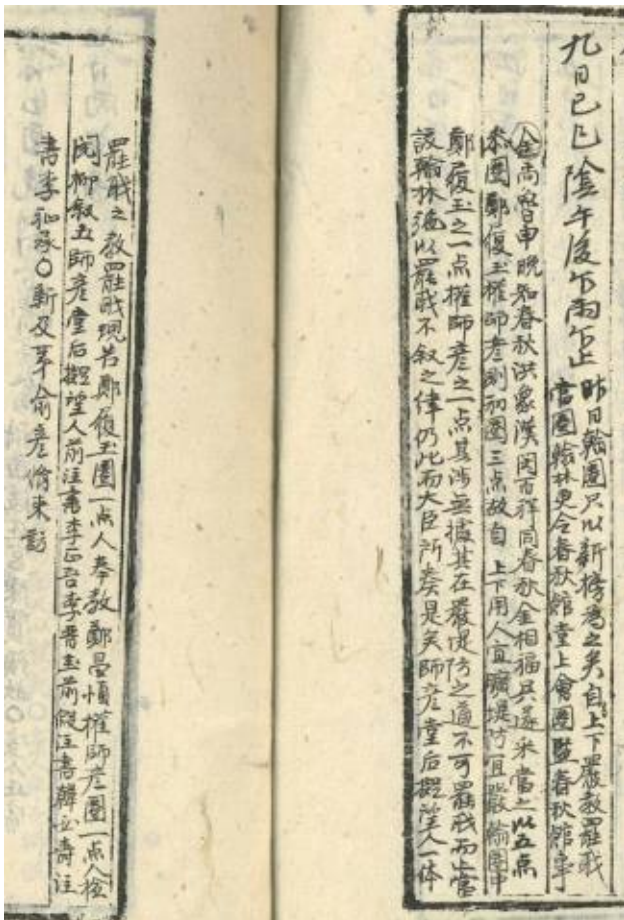 九日己巳陰午後乍雨乍止 昨日翰圈只以新榜爲之矣自上下嚴敎罷職
當圈翰林更令春秋館堂上會圈監春秋館事
金尙魯申晩知春秋洪象漢閔百祥同春秋金相福兵遂來當之以五点
來圈鄭復玉權師彦則初圈三点故自上下用人宜曠堤防宜嚴翰圈中
鄭履玉之一点權師彦之一点甚涉無據其在嚴堤防之道不可罷職而止當
該翰林施以罷職不叙之律仍此而大臣所奏是矣師彦堂后擬望人一体
罷職之敎罷職現告鄭履玉圈一点人奉敎鄭昌順權師彦圈一点人檢
閱柳叙五師彦堂后擬望人前注書李正吾李晋圭前假注書韓必壽注
書李祉承〇新及第俞彦脩來訪